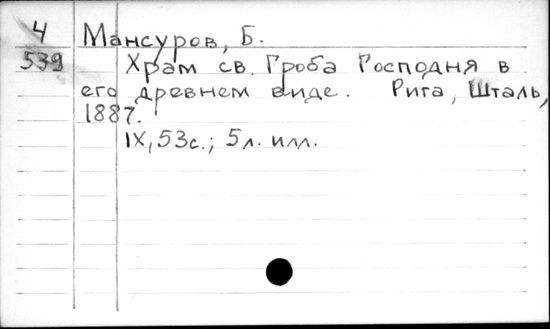 4 Мансуров, Б.
539 Храм св. Гроба Господня в
его древнем виде. Рига, Шталь,
1887.
IX, 53с.; 5л. илл.